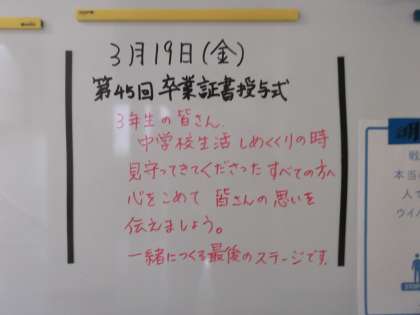 3月19日(金)
第45回卒業証書授与式
3年生の皆さん
中学校生活しめくくりの時
見守ってきてくださったすべての方へ
心をこめて 皆さんの思いを
伝えましょう。
一緒につくる最後のステージです
戦
本当
人で
ウイ
STOP